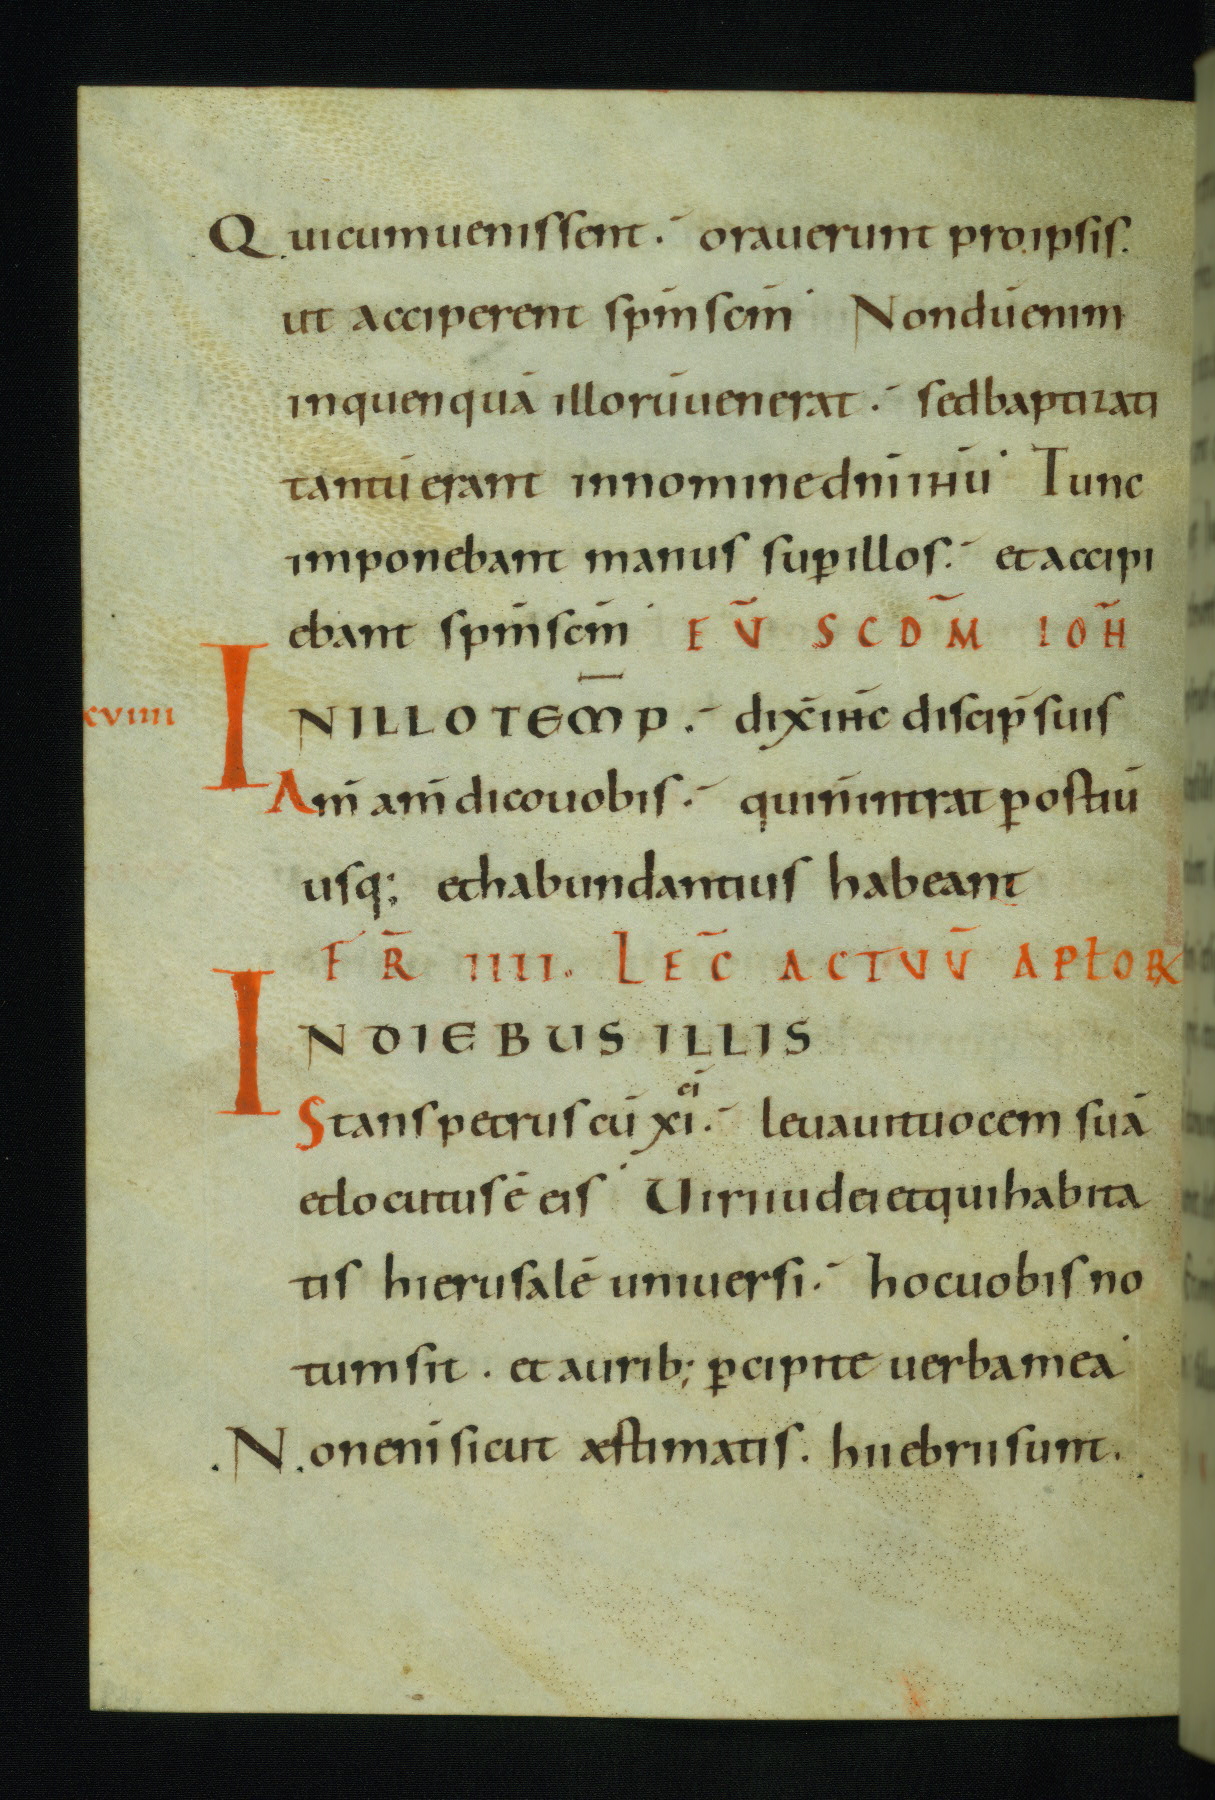 Quicumuenissent. orauerunt proipsis.
ut acciperent sp̄m sc̄m Nondūenim
inquenquā illorūuenerat. sedbaptizati
tantū erant innominedn̄iiħū Tunc
imponebant manus suꝑillos. et accipi
ebant sp̄m sc̄m EV̄ SCDM̄ IOH̄
INILLOTEM̄P. dix̄iħc discip̄ suis
xcviiii
Am̄ am̄ dicouobis. quin̄intrat ꝑostiū
usq; ethabundantius habeant
FR̄ IIII. LEC̄ ACTVV̄ APŁOꝜ
INDIEBUS ILLIS
ci
Stanspetrus cū xi. leuauituocem suā
etlocutus ē eis Uiriiudei etquihabita
tis hierusalē uniuersi. hocuobis no
tumsit. et aurib; ꝑcipite uerbamea
.N.onenī sicut æstimatis. hiiebriisunt.